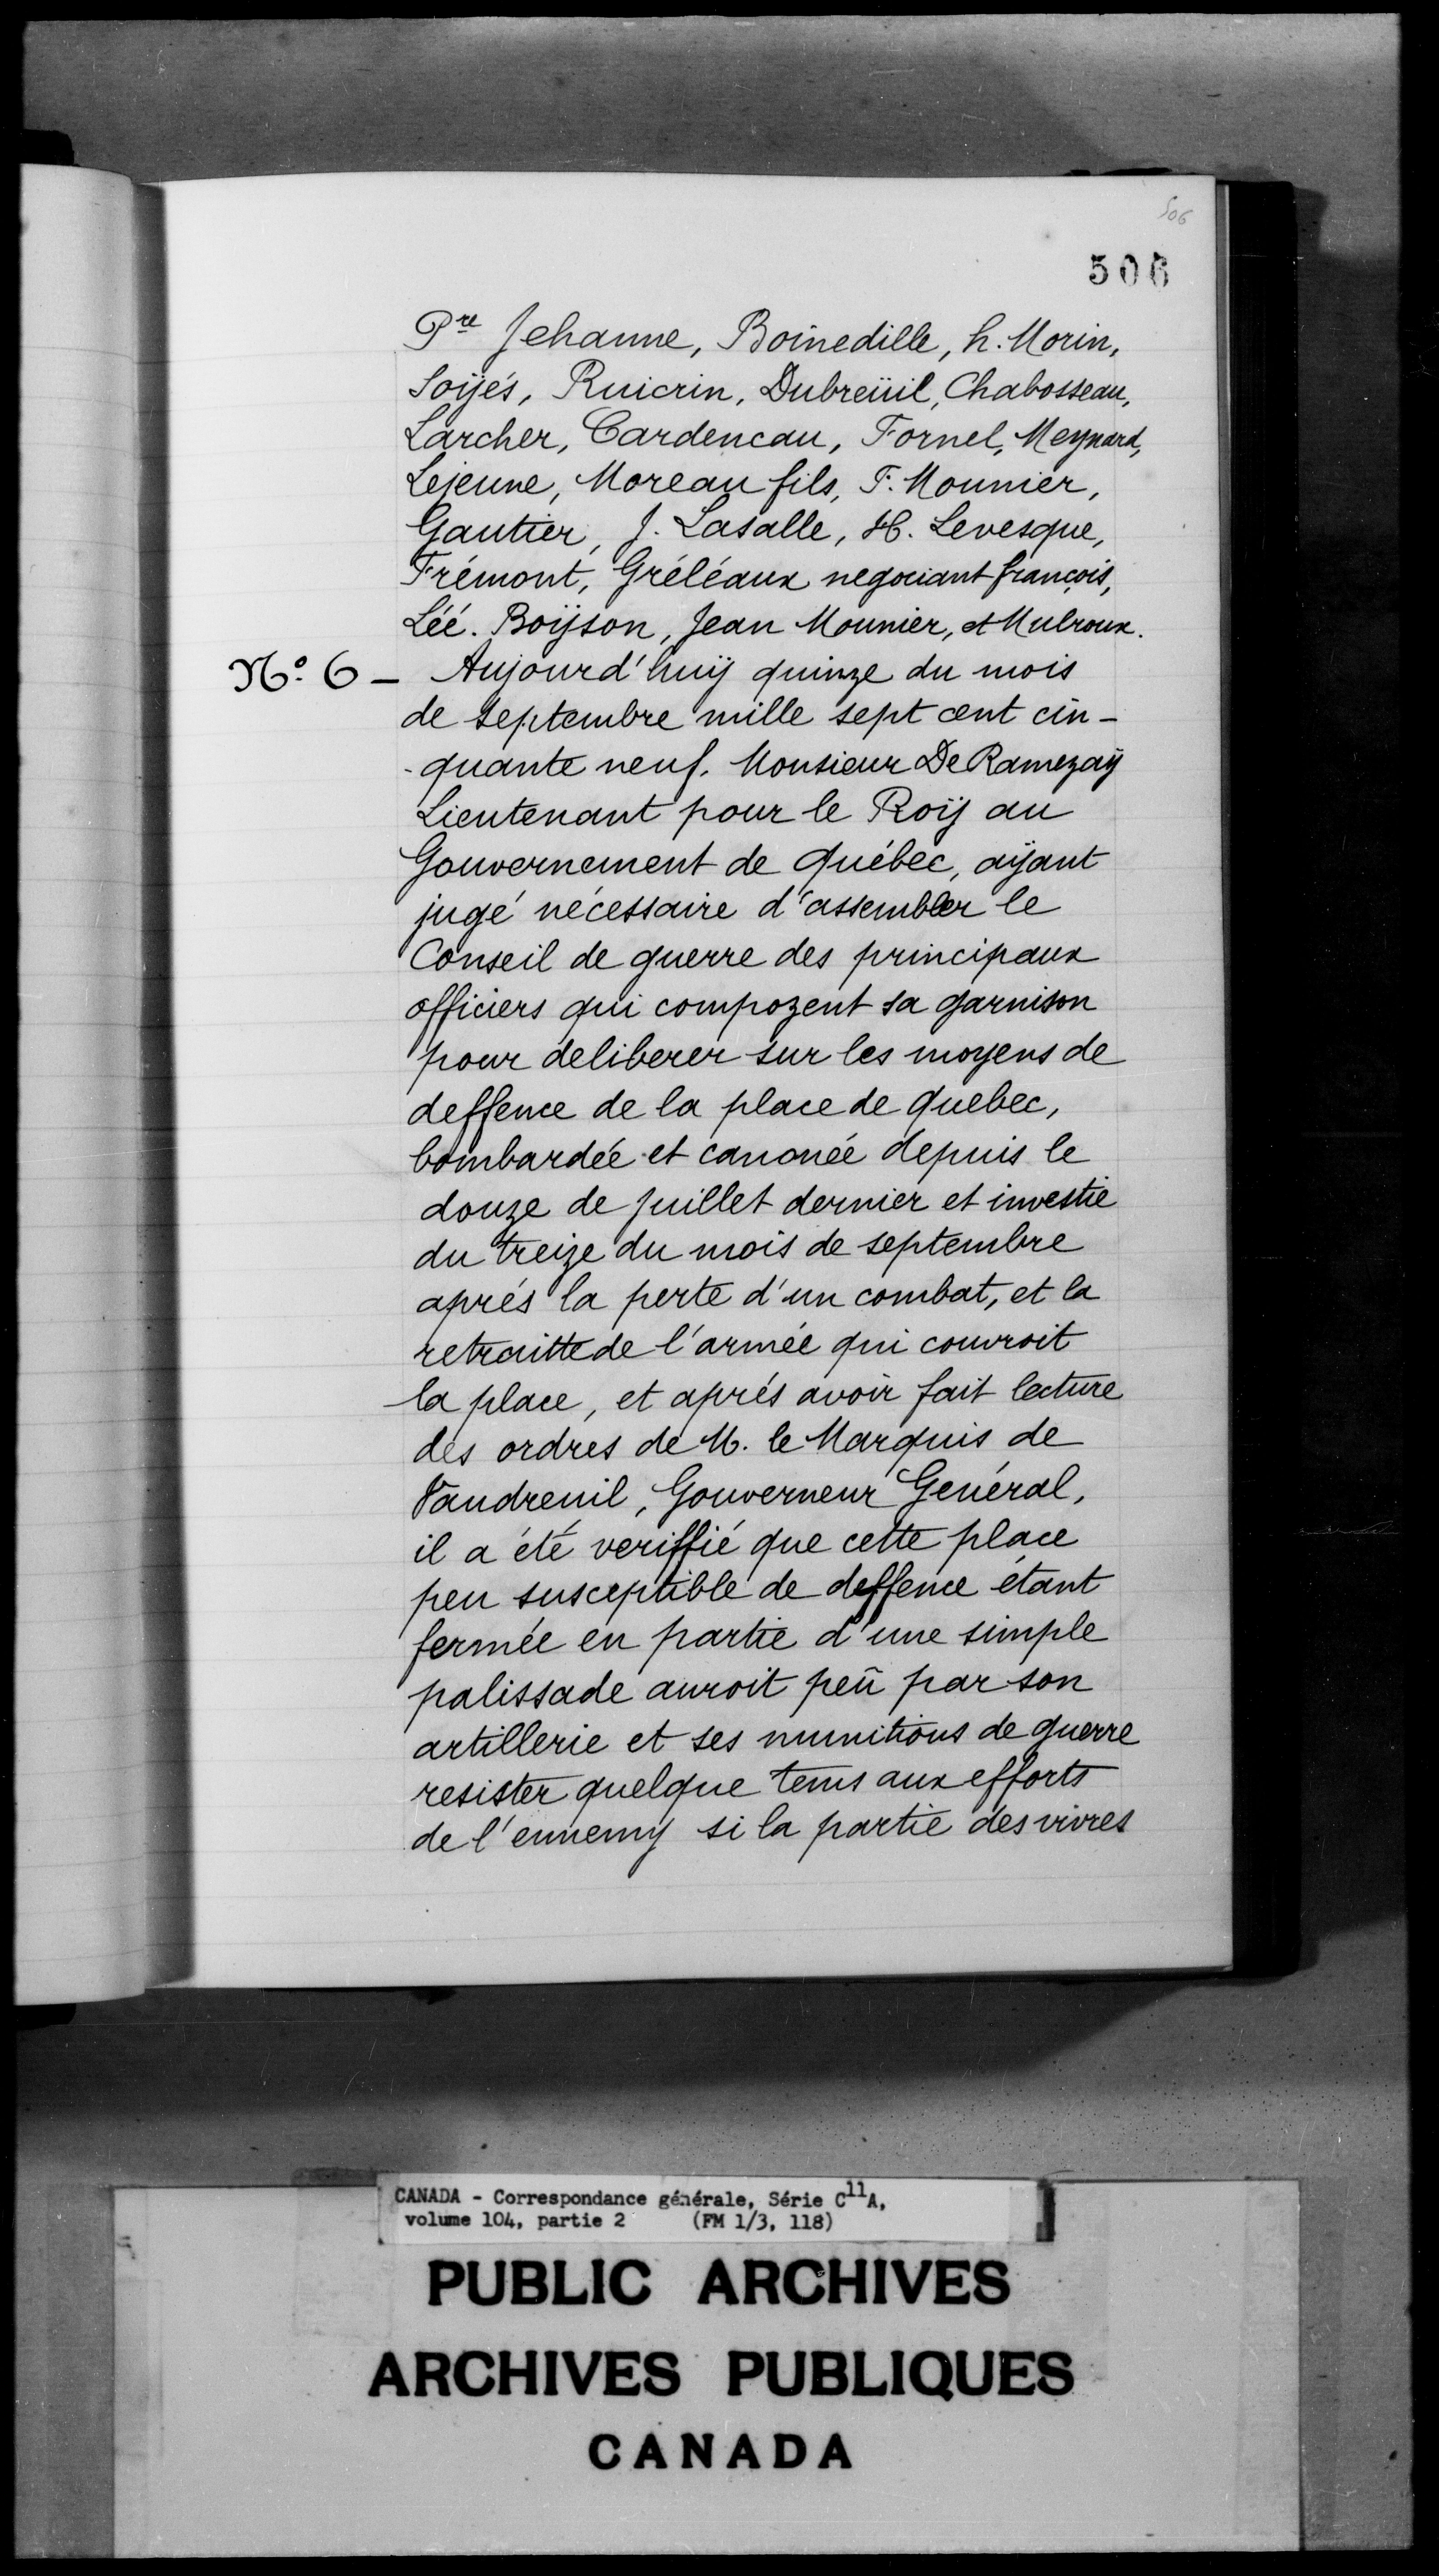 506
506
Pre Jehanne, Boinedille, h. Morin,
Soÿés, Ruicrin, Dubreüil, Chabosseau,
Larcher, Cardeneau, Fornel, Meynard,
Lejeune, Moreau fils, F. Mounier,
Gautier, J. Lasalle, H. Levesque,
Frémont, Gréléaux negociant françois,
Léé. Boÿson, Jean Mounier, et Mulroux.
No. 6 - Aujourd'huÿ quinze du mois
de septembre mille sept cent cin-
-quante neuf. Monsieur De Ramezaÿ
Lieutenant pour le Roÿ au
Gouvernement de Québec, aÿant
jugé nécessaire d'assembler le
Conseil de guerre des principaux
officiers qui compozent sa garnison
pour deliberer sur les moyens de
deffence de la place de Quebec,
bombardée et canonée depuis le
douze de Juillet dernier et investie
du treize du mois de septembre
aprés la perte d'un combat, et la
retraitte de l'armée qui couvroit
la place, et aprés avoir fait lecture
des ordres de M. le Marquis de
Vaudreuil, Gouverneur Genéral,
il a été veriffié que cette place
peu susceptible de deffence étant
fermée en partie d'une simple
palissade auroit peü par son
artillerie et ses munitions de guerre
resister quelque tems aux efforts
de l'ennemy si la partie des vivres
CANADA - Correspondance générale, Série C11A,
volume 104, partie 2 (FM 1/3, 118)
PUBLIC ARCHIVES
ARCHIVES PUBLIQUES
CANADA